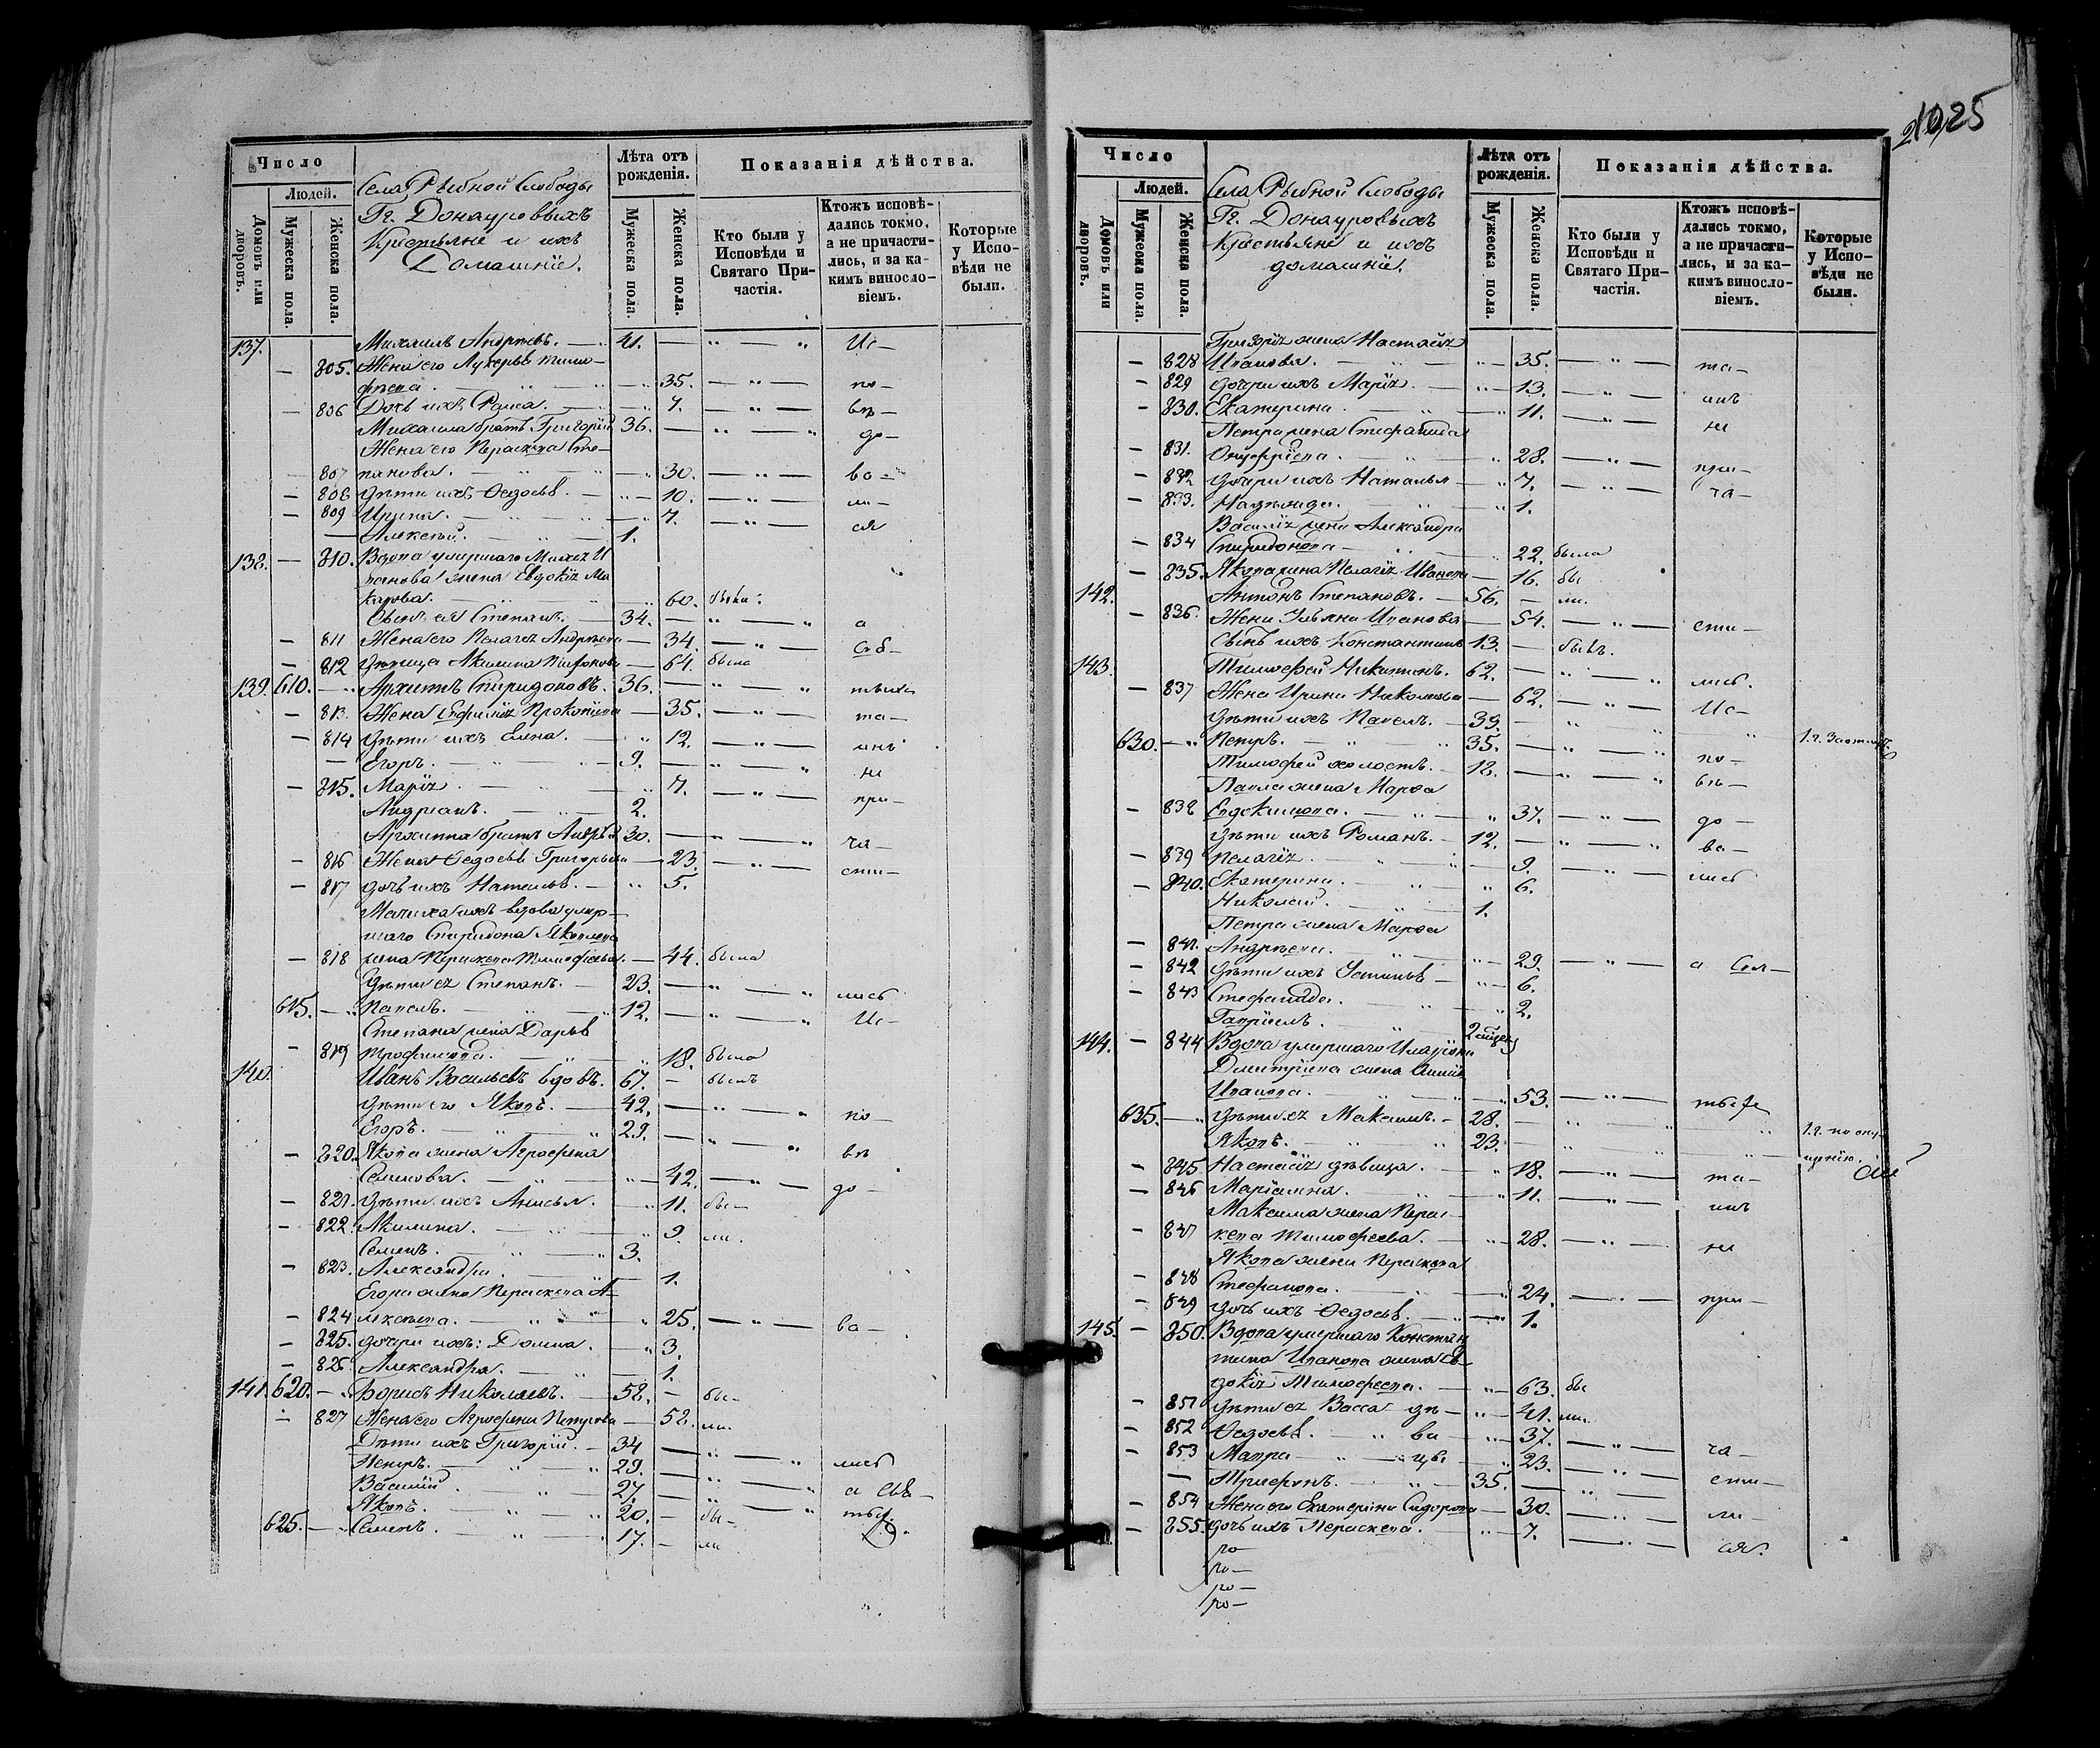 Число
Людей.
Домовъ или дворовъ.
Мужеска пола.
Женска пола.
Села Рыбной Слободы
Гг. Донауровыхъ
Крестьяне и ихъ
Домашніе.
Лѣта отъ рожденія.
Мужеска пола.
Женска пола.
Показанія дѣйства.
Кто были у Исповѣди и Святаго Причастія.
Ктожъ исповѣдались токмо, а не причастились, и за какимъ винословіемъ.
Которые у Исповѣди не были.
137. Михаилъ Андреевъ. — 41. — " — " Ис—
— 805. Жена его Лукерья Тимо—
фѣева. — " — 35. — " — по—
— 806 Дочь ихъ Раиса. — 7. — " — вѣ—
Михаила братъ Григорій 36. — " — " до—
Жена его Параскева Сте—
— 807 панова. — " — 30. — " — ва—
— 808 Дѣти ихъ Ѳедосья. — " — 10. — " — ли—
— 809 Ирина. — " — 7. — " — ся
— Алексѣй. — " — 1.
138. — 810. Вдова умершаго
жена Евдокія Ма
карова. — 60. была.
Сынъ ея Степанъ. — 34. — " — " а
— 811 Жена его Пелагея Андреева — 34. — " — Соб—
— 812 Дѣвица Акилина — 64. была
139. 610. — " Архипъ Спиридоновъ. 36. — " — "
— 813. Жена Евфимія Прокопіева — 35. — " — та—
— 814 Дѣти ихъ Елена. — " 12. — " — инъ
— Егоръ. — " — 9. — " — не
— 815. Марія. — " — 7. — " — при—
Андріанъ. — " — 2.
Архипа братъ Андрей 30. — " — " ча—
— 816 Жена Ѳедосья Григорьева — 23. — " — сти—
— 817 дочь ихъ Наталья. — " 5.
Мачиха ихъ вдова умер—
шаго Спиридона Яковлева
— 818 жена Параскева Тимофѣева. — 44. была
Дѣти ея Степанъ. — 23. — " — " лись
615. — " Павелъ. — " 12. — " — " Ис—
Степана жена Дарья
— 819 Трофимова. — " — 18. была
140. Иванъ Васильевъ вдовъ. 67. — былъ
Дѣти его Яковъ. — 42. — " — " по—
Егоръ. — " — " 29. — " — " вѣ
— 820. Якова жена Агрофена
Семенова. — " — 42. — " — до—
— 821. Дѣти ихъ Анисья. — " 11. бы—
— 822. Акилина. — " — 9. ли.
Семенъ. — " — " 3.
— 823. Александра. — 1.
Егора жена Параскева А—
— 824 лексѣева. — " — 25. — " — ва—
— 825. дочери ихъ: Домна. — " 3.
— 826 Александра. — " — 1.
141. 620. — " Борисъ Николаевъ. 58. — бы—
— 827 Жена его Агрофена Петрова — 58. ли.
Дѣти ихъ Григорій. — 34 — " — " лись
Петръ. — " — " 29. — " — " а Свя—
Василій. — " — 27. — " — "
Яковъ. — " — " 20. — бы—
625. — " Семенъ. — " — 17. — ли
Число
Людей.
Домовъ или дворовъ.
Мужеска пола.
Женска пола.
Села Рыбной Слободы
Гг. Донауровыхъ
Крестьяне и ихъ
домашніе.
Лѣта отъ рожденія.
Мужеска пола.
Женска пола.
Показанія дѣйства.
Кто были у Исповѣди и Святаго Причастія.
Ктожъ исповѣдались токмо, а не причастились, и за какимъ винословіемъ.
Которые у Исповѣди не были.
Григорія жена Настасія
— 828 Иванова. — " — 35. — " — та—
— 829 дочери ихъ Марія. — " — 13. — " — инъ
— 830. Екатерина. — " — 11. — " — не
Петра жена Стефанида
— 831. Онуфріева. — " — 28. — " — при—
— 832 дочери ихъ Наталья — " 7. — " — ча—
— 833. Надежда. — " — 1.
Василія жена Александра
— 834 Спиридонова — " — 22. была
— 835. Якова жена Пелагія Иванова — 16. бы
142. Антонъ Степановъ. — 56. — ли.
— 836. Жена Ульяна Иванова — 54. — " — сти—
Сынъ ихъ Константинъ 13. — былъ.
143. Тимофей Никитинъ. 62. — " — " лись.
— 837 Жена Ирина Николаева — 62. — " — Ис—
Дѣти ихъ Павелъ. — 39. — " — " "
630. — " Петръ. — " — " 35. — " — " по—
Тимофей холостъ. — 12. — " — " вѣ—
Павла жена Марѳа
— 838 Евдокимова. — " — " 37. — " — до—
Дѣти ихъ Романъ. — 12. — " — " ва—
— 839 Пелагія. — " — " 9. — " — лись
— 840. Екатерина. — " — " 6.
Николай. — " — 1.
Петра жена Марѳа
— 841. Андреева. — " — 29. — " — а Свя—
— 842 Дѣти ихъ Устинья — " 6.
— 843 Стефанида. — " — " 2.
Гавріилъ. — "
144. — 844 Вдова умершаго Иларіона
Дмитріева жена Анна
Иванова. — " — " 53. — " —
635. — " Дѣти ея Максимъ. — 28. — " — " "
Яковъ. — " — " 23. — " — "
— 845. Настасія дѣвица. — " 18. — " — та—
— 846 Маріамна. — " — 11. — " — инъ
Максима жена Парас—
— 847 кева Тимофеева. — " — 28. — " — не
Якова жена Параскева
— 848 Стефанова. — " — 24. — " — при—
— 849 дочь ихъ Ѳедосья. — " — 1.
145. — 850. Вдова умершаго Констан
тина Иванова жена Ев—
докія Тимофеева. — " — 63. бы
— 851 Дѣти ея Васса дѣ— " — 41. ли.
— 852 Ѳедосья. — " ви — " — 37. — " — ча—
— 853 Мавра — " — цы — " 23. — " — сти—
— Трифонъ. — " — 35. — " —
— 854 Жена его Екатерина Сидорова — 30. — " — ли—
— 855. дочь ихъ Параскева. — " — 7. — " — ся.